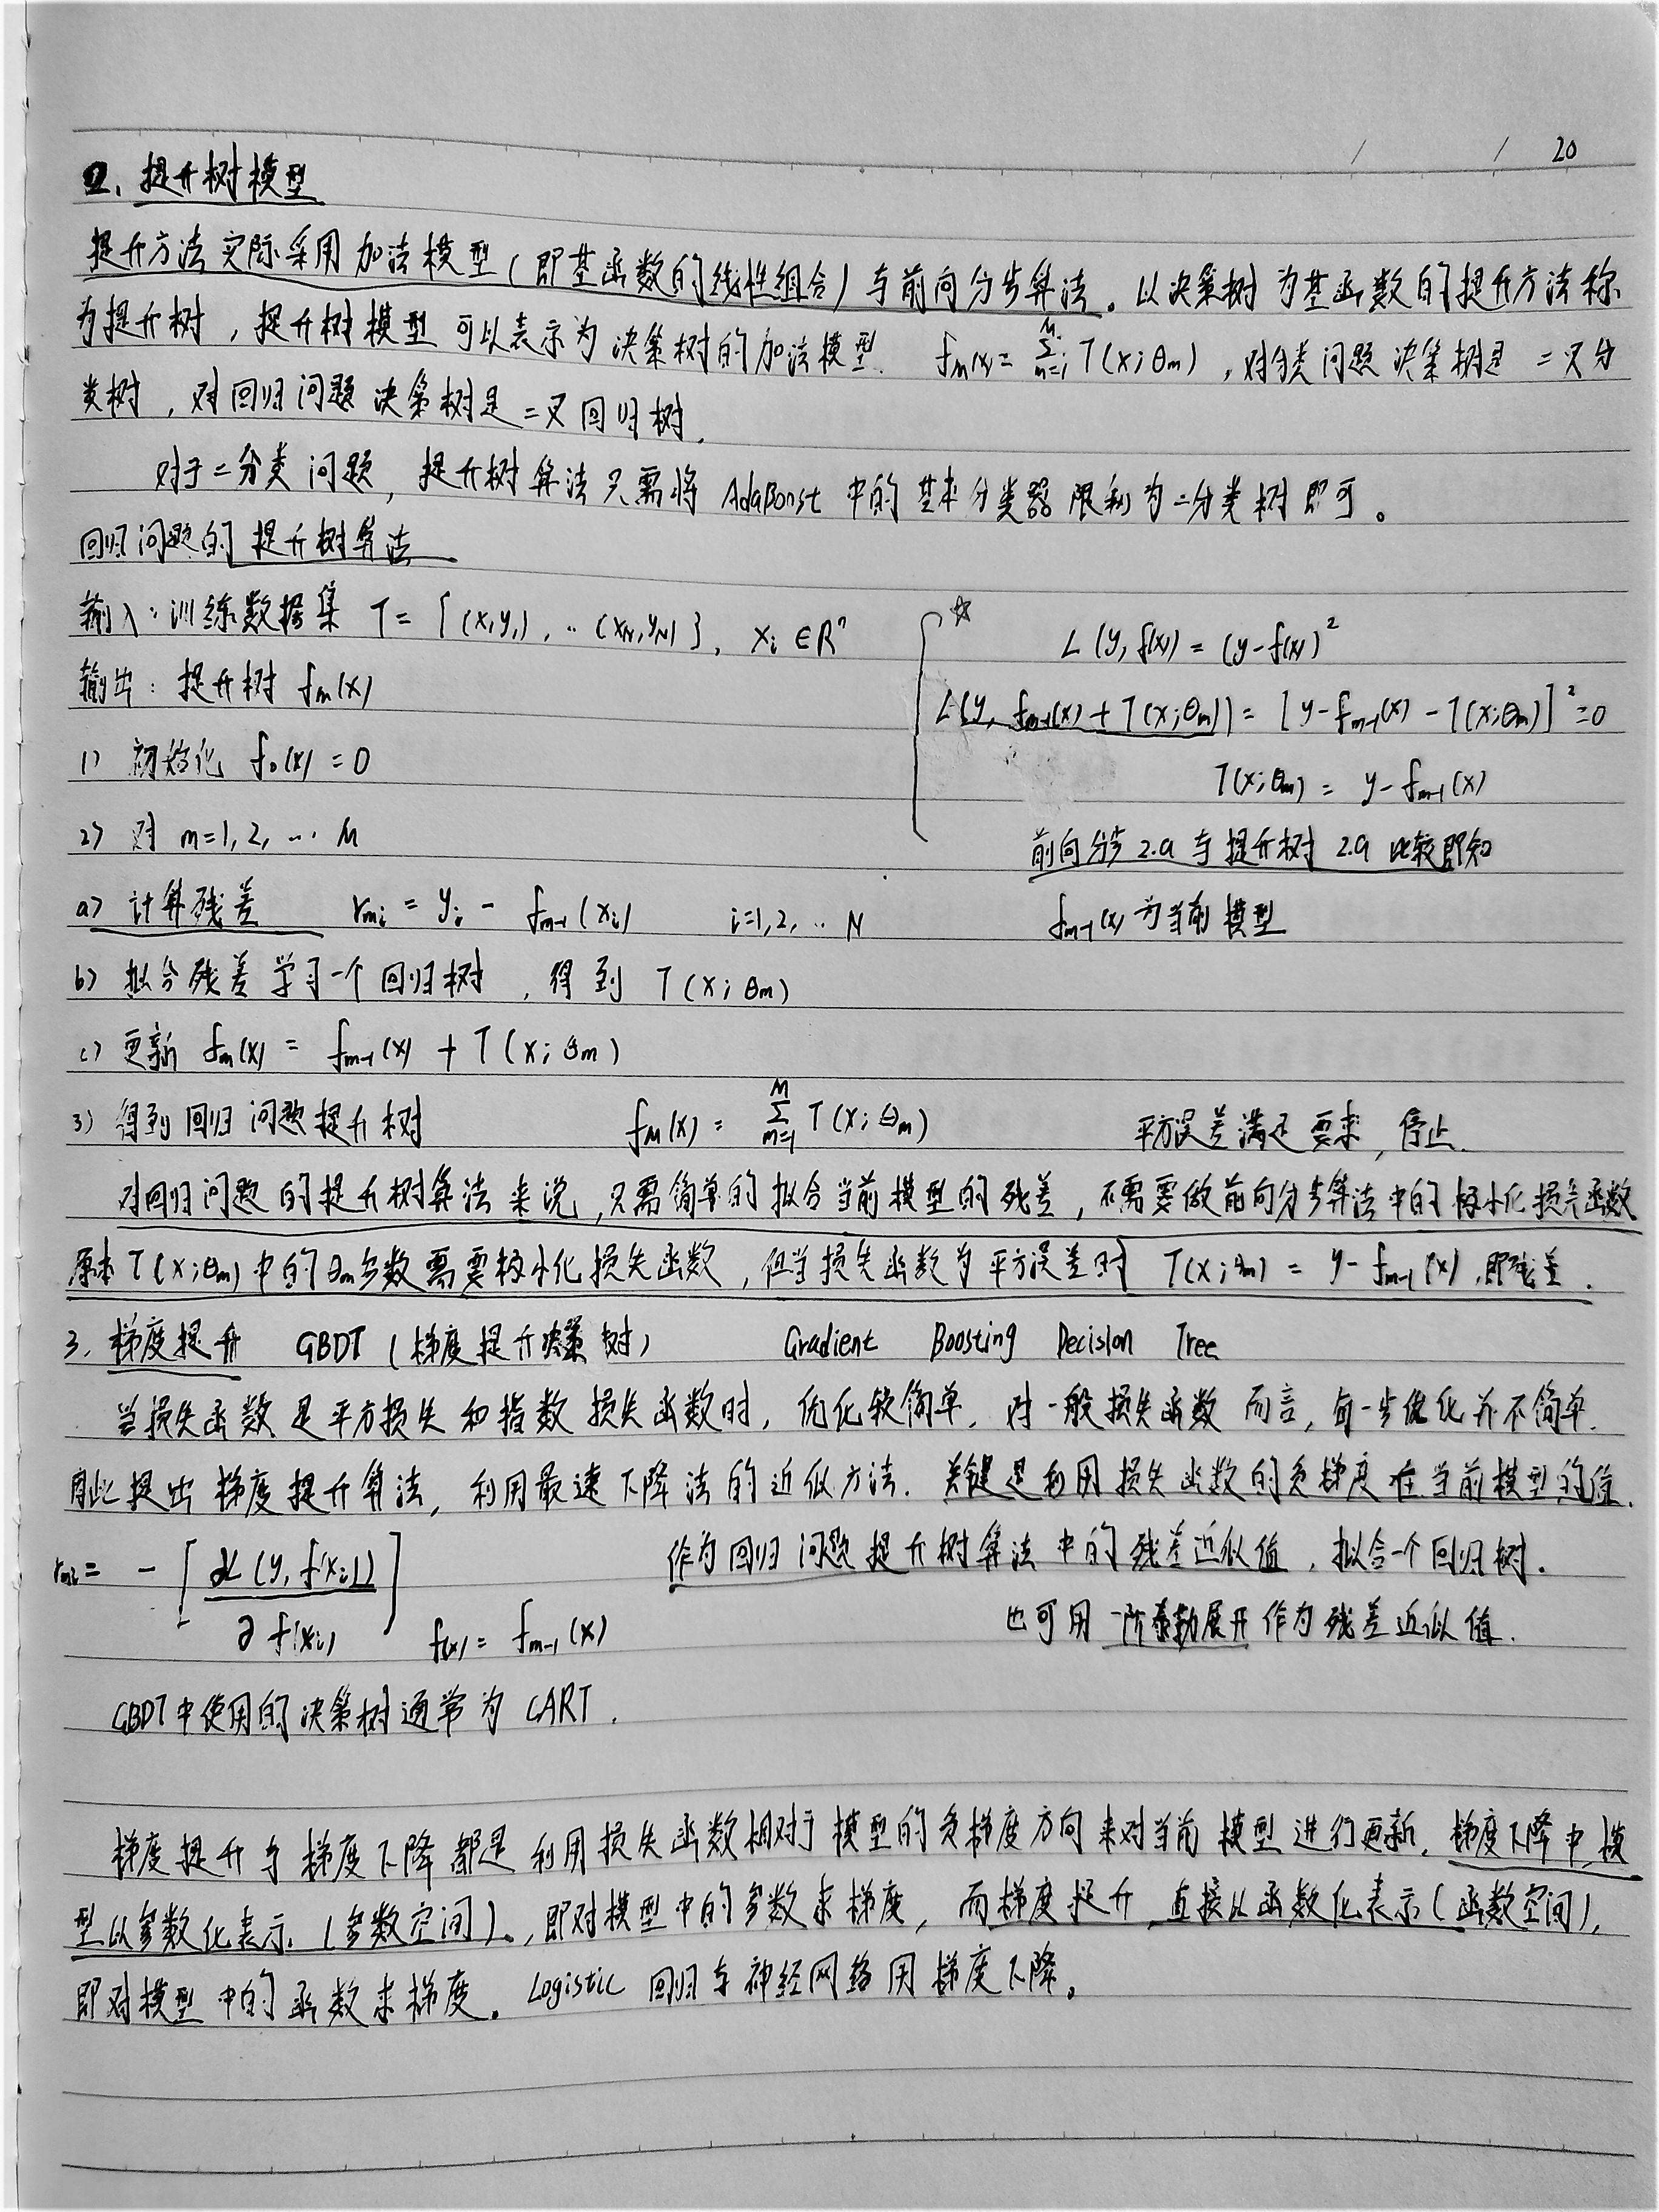 / / 20
2. 提升树模型
提升方法实际采用加法模型(即基函数的线性组合)与前向分步算法。以决策树为基函数的提升方法称
为提升树，提升树模型可以表示为决策树的加法模型. fm(x)= Σ_{m=1}^{M} T(x;θm)，对分类问题决策树是二叉分
类树，对回归问题决策树是二叉回归树.
对于二分类问题，提升树算法只需将AdaBoost中的基本分类器限制为二分类树即可。
回归问题的提升树算法
输入：训练数据集 T={(x,y,), ‥ (xN,yN)}, xi∈R^n
☆ L(y,f(x))=(y-f(x))²
输出：提升树 fm(x)
L(y, fm-1(x)+T(x;θm))=[y-fm-1(x)-T(x;θm)]²=0
1) 初始化 f0(x)=0
T(x;θm) = y-fm-1(x)
2) 对 m=1,2,… M
前向分步2.a与提升树2.a比较即知
a) 计算残差 rmi = yi - fm-1(xi) i=1,2,‥ N
fm-1(x)为当前模型
b) 拟合残差学习一个回归树，得到 T(x;θm)
c) 更新 fm(x) = fm-1(x) + T(x;θm)
3) 得到回归问题提升树 fM(x) = Σ_{m=1}^{M} T(x;θm) 平方误差满足要求，停止.
对回归问题的提升树算法来说，只需简单的拟合当前模型的残差，不需要做前向分步算法中的极小化损失函数
原本T(x;θm)中的θm参数需要极小化损失函数，但当损失函数为平方误差时 T(x;θm) = y-fm-1(x),即残差.
3. 梯度提升 GBDT(梯度提升决策树) Gradient Boosting Decision Tree
当损失函数是平方损失和指数损失函数时，优化较简单，对一般损失函数而言，每一步优化并不简单.
因此提出梯度提升算法，利用最速下降法的近似方法. 关键是利用损失函数的负梯度在当前模型的值.
rmi= -[∂L(y,f(xi))/∂f(xi)] f(x)=fm-1(x) 作为回归问题提升树算法中的残差近似值，拟合一个回归树.
也可用一阶泰勒展开作为残差近似值.
GBDT中使用的决策树通常为CART.
梯度提升与梯度下降都是利用损失函数相对于模型的负梯度方向来对当前模型进行更新. 梯度下降中,模
型以参数化表示.(参数空间).,即对模型中的参数求梯度，而梯度提升直接以函数化表示(函数空间),
即对模型中的函数求梯度。Logistic回归与神经网络用梯度下降。